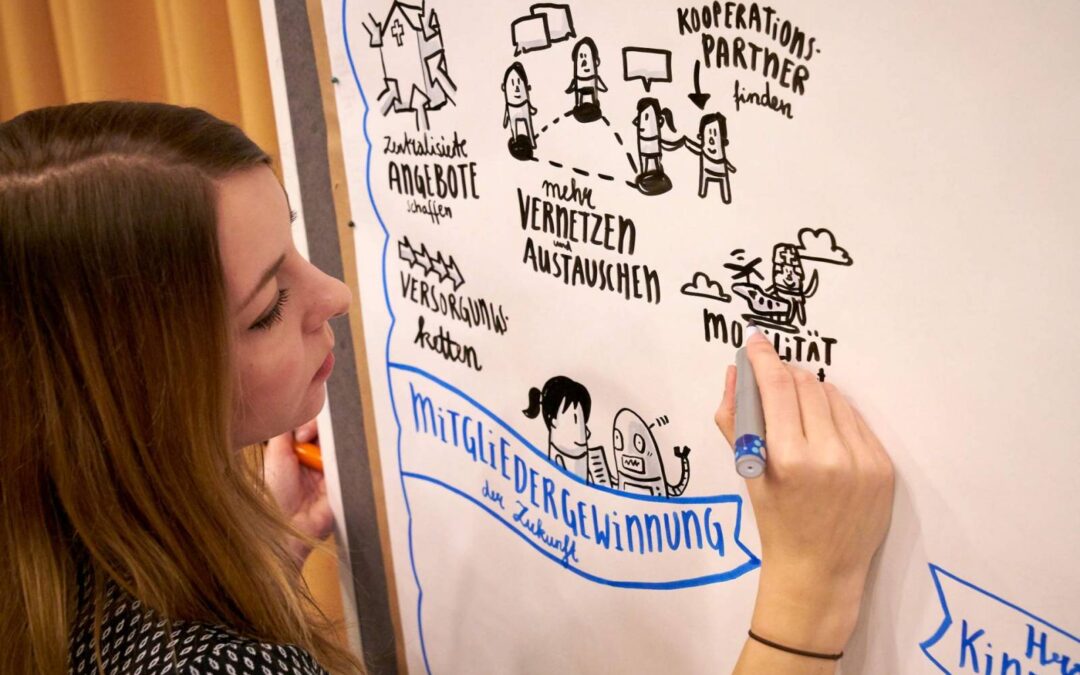 KOOPERATIONS-
PARTNER
finden
Zentralisierte
ANGEBOTE
schaffen
mehr
VERNETZEN
und
AUSTAUSCHEN
VERSORGUNGS-
ketten
MOBILITÄT
MITGLIEDERGEWINNUNG
der Zukunft